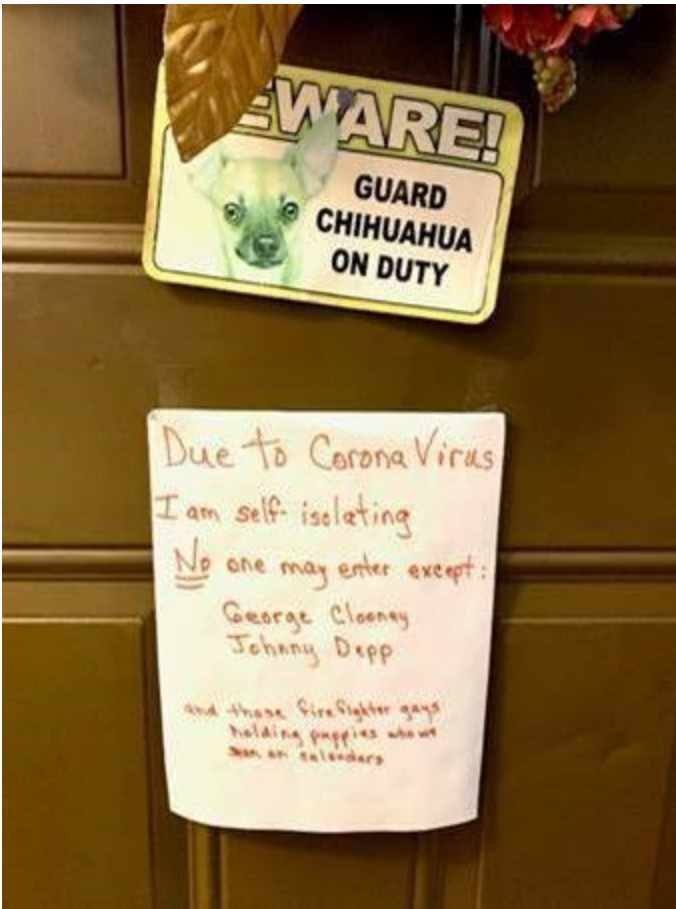 EWARE!
GUARD
CHIHUAHUA
ON DUTY
Due to Corona Virus
I am self-isolating
No one may enter except:
George Clooney
Johnny Depp
and those firefighter guys
holding puppies who we
on calendars